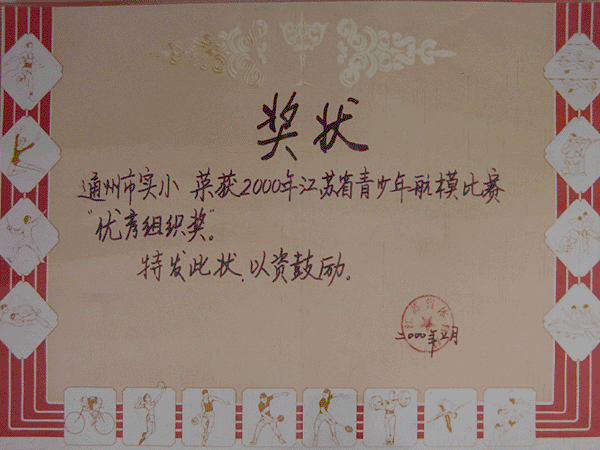 奖状
通州市实小 荣获2000年江苏省青少年航模比赛
“优秀组织奖”。
特发此状,以资鼓励。